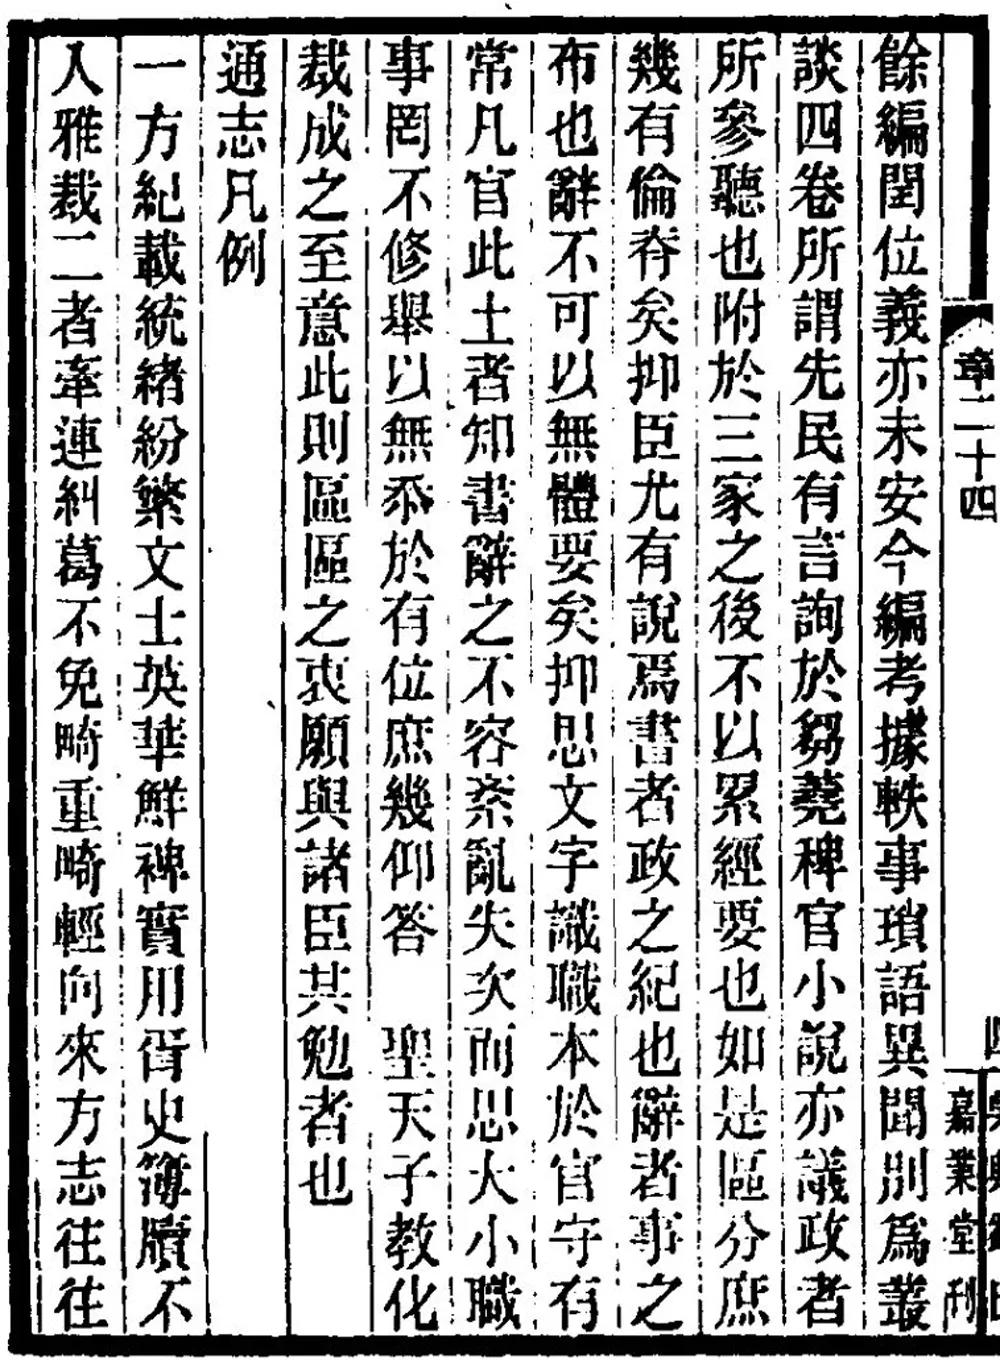 章二十四
嘉業堂刊
餘編閏位義亦未安今編考據軼事瑣語異聞別爲叢
談四卷所謂先民有言詢於芻蕘稗官小說亦議政者
所參聽也附於三家之後不以累經要也如是區分庶
幾有倫脊矣抑臣尤有說焉書者政之紀也辭者事之
布也辭不可以無體要矣抑思文字識職本於官守有
常凡官此土者知書辭之不容紊亂失次而思大小職
事罔不修舉以無忝於有位庶幾仰答 聖天子教化
裁成之至意此則區區之衷願與諸臣其勉者也
通志凡例
一方紀載統緒紛繁文士英華鮮裨實用胥史簿牘不
入雅裁二者牽連糾葛不免畸重畸輕向來方志往往